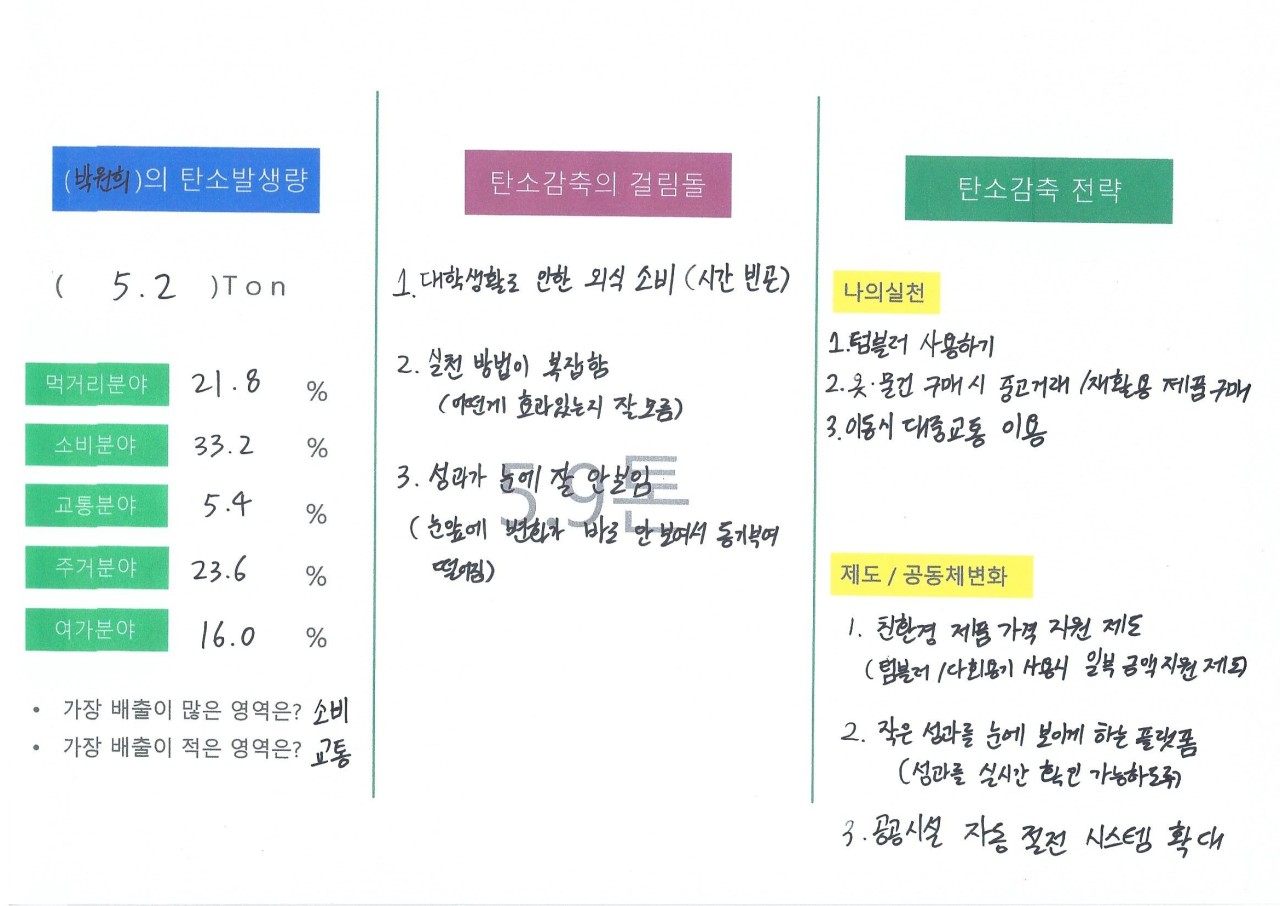 (박원희)의 탄소발생량
( 5.2 )Ton
먹거리분야 21.8 %
소비분야 33.2 %
교통분야 5.4 %
주거분야 23.6 %
여가분야 16.0 %
• 가장 배출이 많은 영역은? 소비
• 가장 배출이 적은 영역은? 교통
탄소감축의 걸림돌
1. 대학생활로 인한 외식 소비 (시간 빈곤)
2. 실천 방법이 복잡함
(어떤게 효과있는지 잘 모름)
5.9톤
3. 성과가 눈에 잘 안보임
(눈앞에 변화가 바로 안 보여서 동기부여
떨어짐)
탄소감축 전략
나의실천
1. 텀블러 사용하기
2. 옷·물건 구매 시 중고거래 / 재활용 제품 구매
3. 이동시 대중교통 이용
제도 / 공동체변화
1. 친환경 제품 가격 지원 제도
(텀블러 / 다회용기 사용시 일부 금액 지원 제도)
2. 작은 성과를 눈에 보이게 하는 플랫폼
(성과를 실시간 확인 가능하도록)
3. 공공시설 자동 절전 시스템 확대